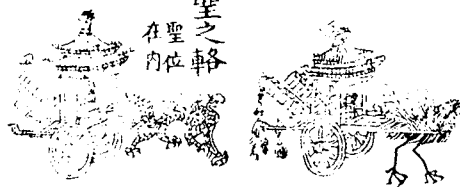 聖之輅
聖位
在内